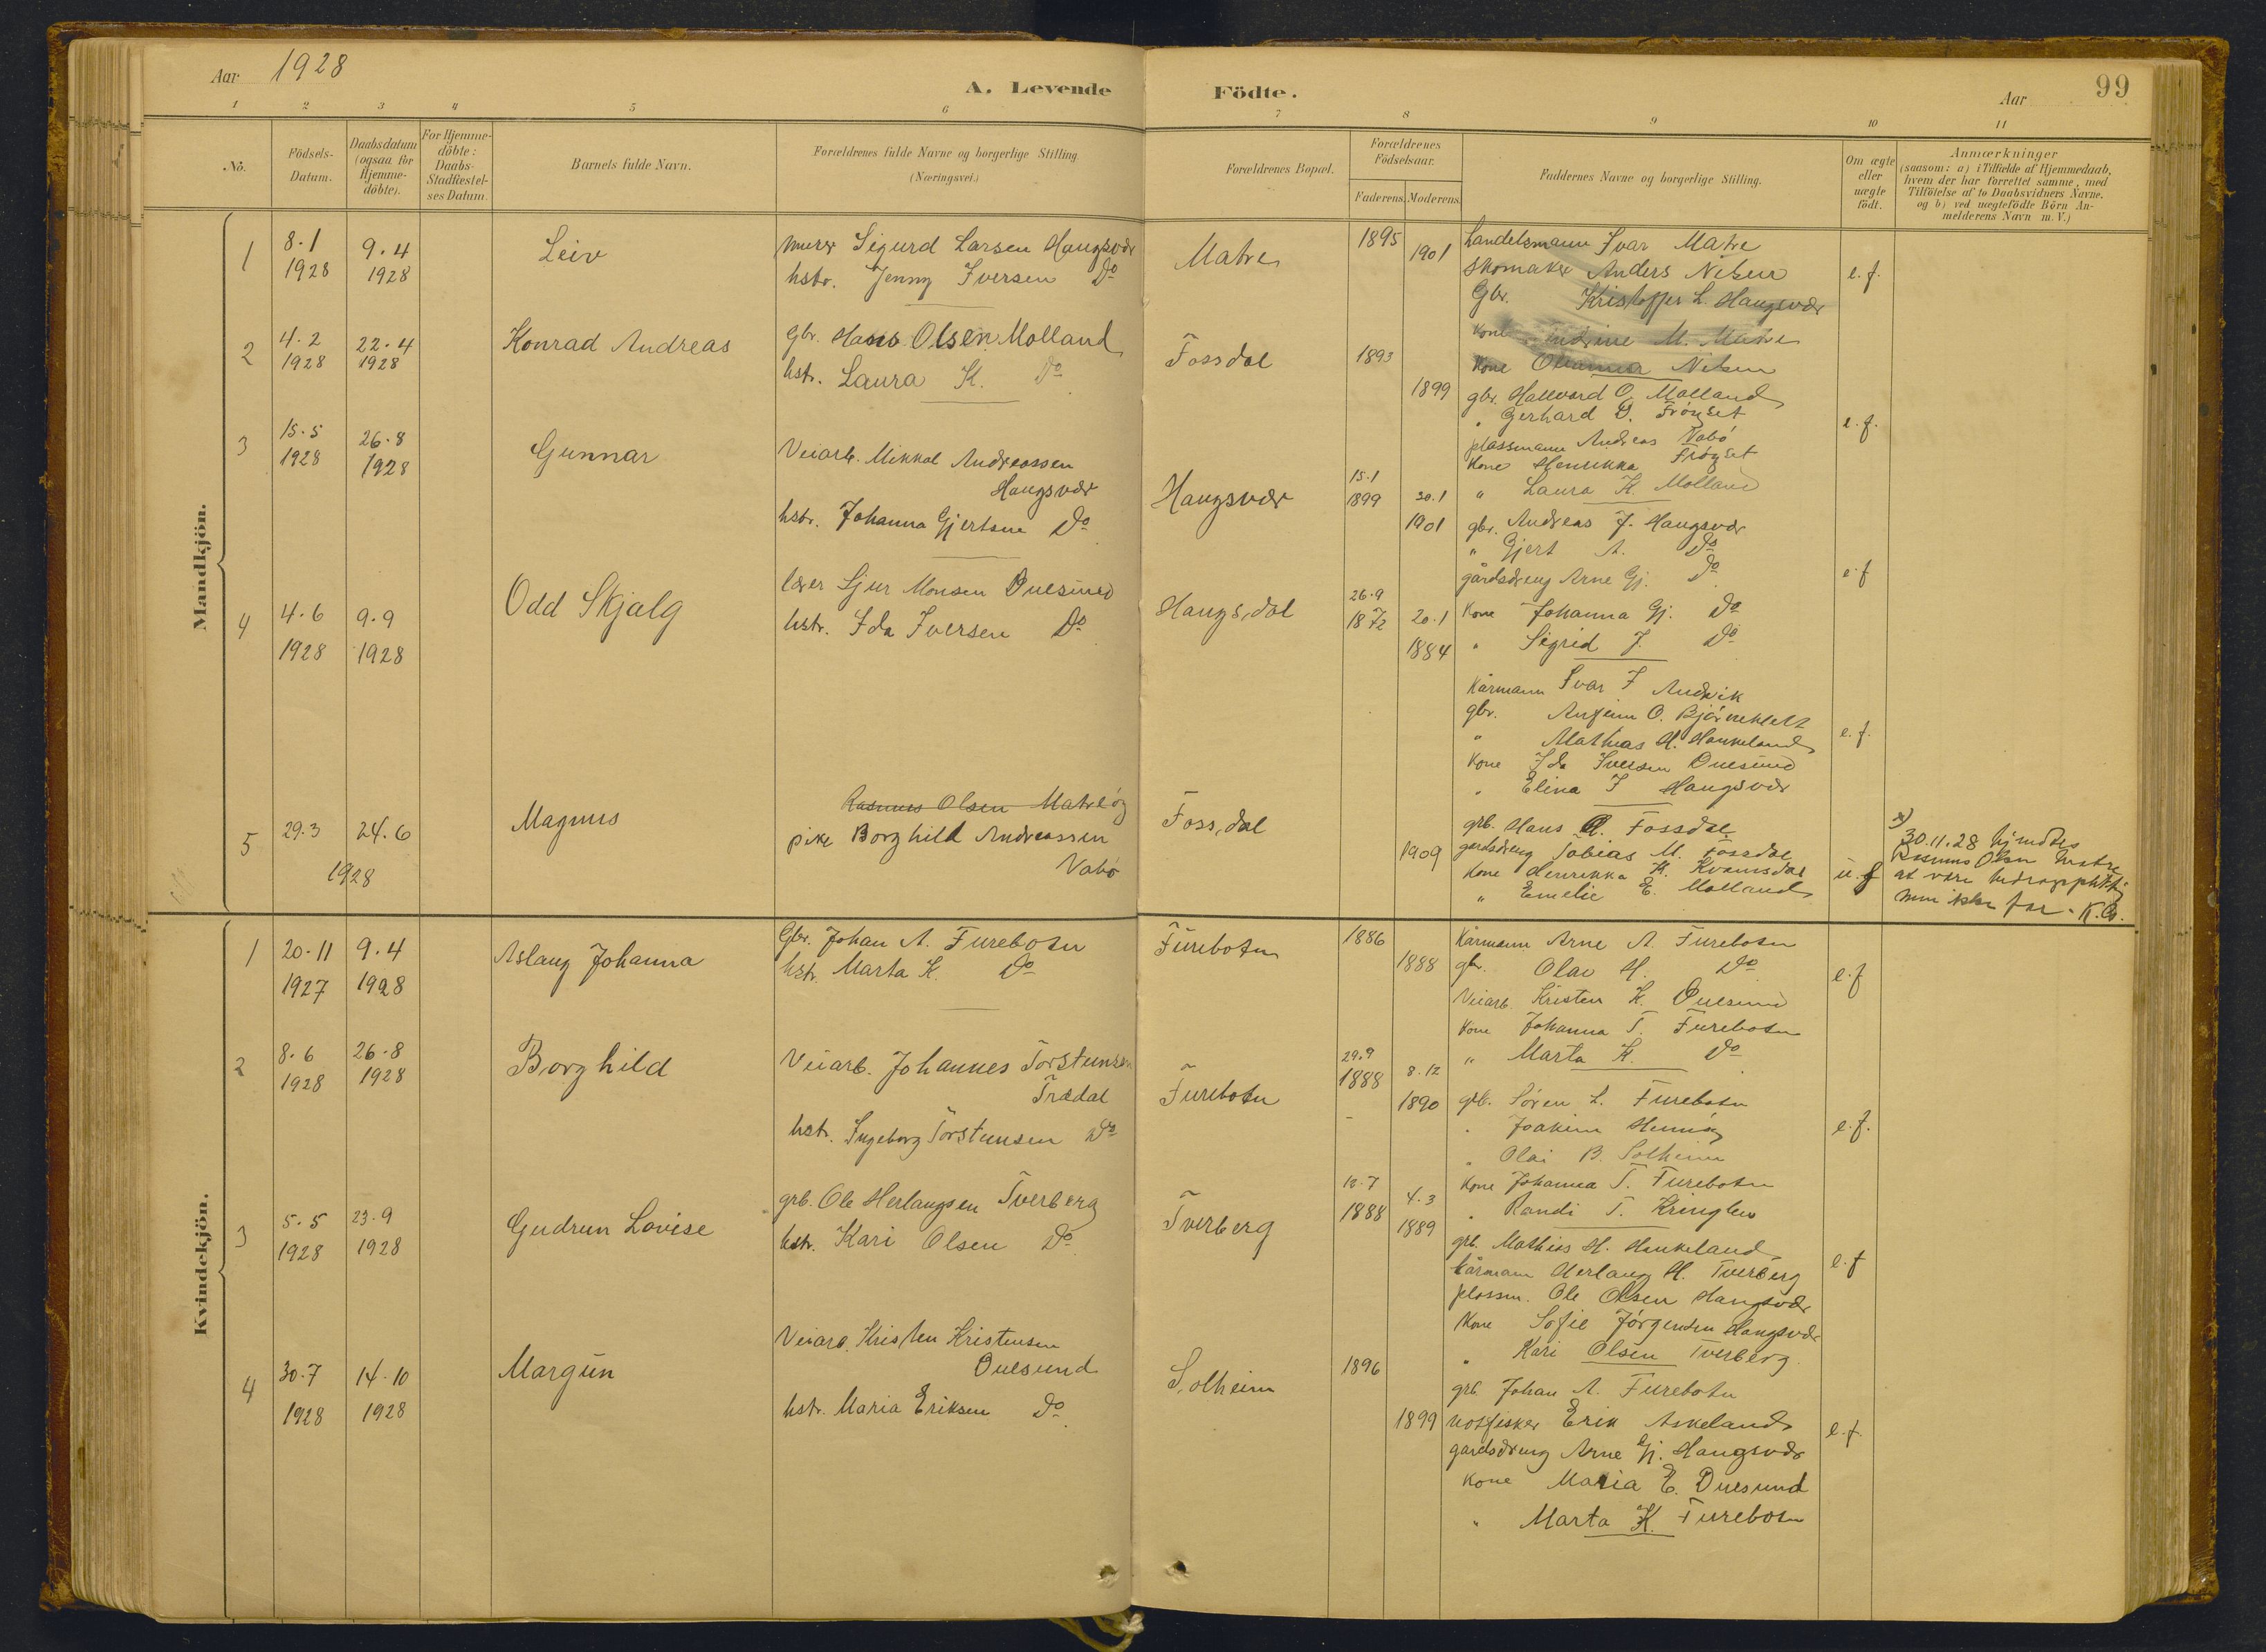 Aar 1928
A. Levende
Födte.
Aar
99
1 2 3 4 5 6 7 8 9 10 11
No.
Födsels-
Datum.
Daabsdatum
(ogsaa for
Hjemme-
döbte).
For Hjemme-
döbte:
Daabs-
Stadfæstel-
ses Datum.
Barnets fulde Navn.
Forældrenes fulde Navne og borgerlige Stilling
(Næringsvei.)
Forældrenes Bopæl.
Forældrenes
Födselsaar.
Faderens. Moderens.
Faddernes Navne og borgerlige Stilling.
Om ægte
eller
uægte
födt.
Anmærkninger
(saasom: a) i Tilfælde af Hjemmedaab,
hvem der har forrettet samme, med
Tilföielse af to Daabsvidners Navne.
og b) ved uægtefödte Börn An-
melderens Navn m. V.)
Mandkjön.
1
8.1
1928
9.4
1928
Leiv
murer Sigurd Larsen Haugsvær
hstr. Jenny Iversen Do
Matre
1895
1901
Landelsmann Ivar Matre
Skomaker Anders Nilsen
Gbr. Kristoffer L. Haugsvær
Kone M. Matre
Kone Nilsen
e.f.
2
4.2
1928
22.4
1928
Konrad Andreas
Gbr. Hans Olsen Molland
hstr. Laura K. Do
Fossdal
1893
1899
gbr. Hallvard O. Molland
" Gerhard D. Frøyset
plassmann Andreas Nabø
Kone Henrikka Frøyset
" Laura K. Molland
e.f.
3
15.5
1928
26.8
1928
Gunnar
Veiarb. Mikkal Andreassen
Haugsvær
hstr. Johanna Gjertsen Do
Haugsvær
15.1
1899
30.1
1901
gbr. Andreas J. Haugsvær
" Gjert A. Do
gårdsdreng Arne Gj. Do
Kone Johanna Gj. Do
" Sigrid J. Do
e.f
4
4.6
1928
9.9
1928
Odd Skjalg
lærer Sjur Monsen Duesund
hstr. Ida Iversen Do
Haugsdal
26.9
1872
20.1
1884
Kårmann Ivar I Andvik
gbr. Anfinn O. Bjørneklett
" Mathias H. Haukeland
Kone Ida Iversen Duesund
" Elina I Haugsvær
e.f.
5
29.3
24.6
1928
Magnus
Rasmus Olsen Matreøy
pike Borghild Andreassen
Nabø
Fossdal
1909
grb. Hans R. Fossdal
gårdsdreng Tobias M. Fossdal
Kone Henrikka K. Kvamsdal
" Emelie E. Molland
u.f
x)
30.11.28
Rasmus Olsen Matre
at være bidragspliktig
men ikke far. K.B.
Kvindekjön.
1
20.11
1927
9.4
1928
Aslaug Johanna
Gbr. Johan A. Furebotn
hstr. Marta K. Do
Furebotn
1886
1888
Kårmann Arne A. Furebotn
gbr. Olav H. Do
Veiarb. Kristen K. Duesund
Kone Johanna T. Furebotn
" Marta K. Do
e.f
2
8.6
1928
26.8
1928
Borghild
Veiarb. Johannes Torsteinsen
Trædal
hstr. Ingeborg Torsteinsen Do
Furebotn
29.9
1888
8.12
1890
grb. Søren L. Furebotn
" Joakim Henøy
" Olai B. Solheim
Kone Johanna T. Furebotn
" Randi T. Kringlen
e.f.
3
5.5
1928
23.9
1928
Gudrun Lovise
grb. Ole Herlaugsen Tverberg
hstr. Kari Olsen Do
Tverberg
12.7
1888
4.3
1889
grb. Mathias H. Haukeland
kårmann Herlaug H. Tverberg
plassm. Ole Olsen Haugsvær
Kone Sofie Jørgensen Haugsvær
" Kari Olsen Tverberg
e.f
4
30.7
1928
14.10
1928
Margun
Veiarb. Kristen Kristensen
Duesund
hstr. Maria Eriksen Do
Solheim
1896
1899
grb Johan A. Furebotn
notfisker Erik Askeland
gardsdreng Arne Gj. Haugsvær
Kone Maria E. Duesund
" Marta K. Furebotn
e.f.